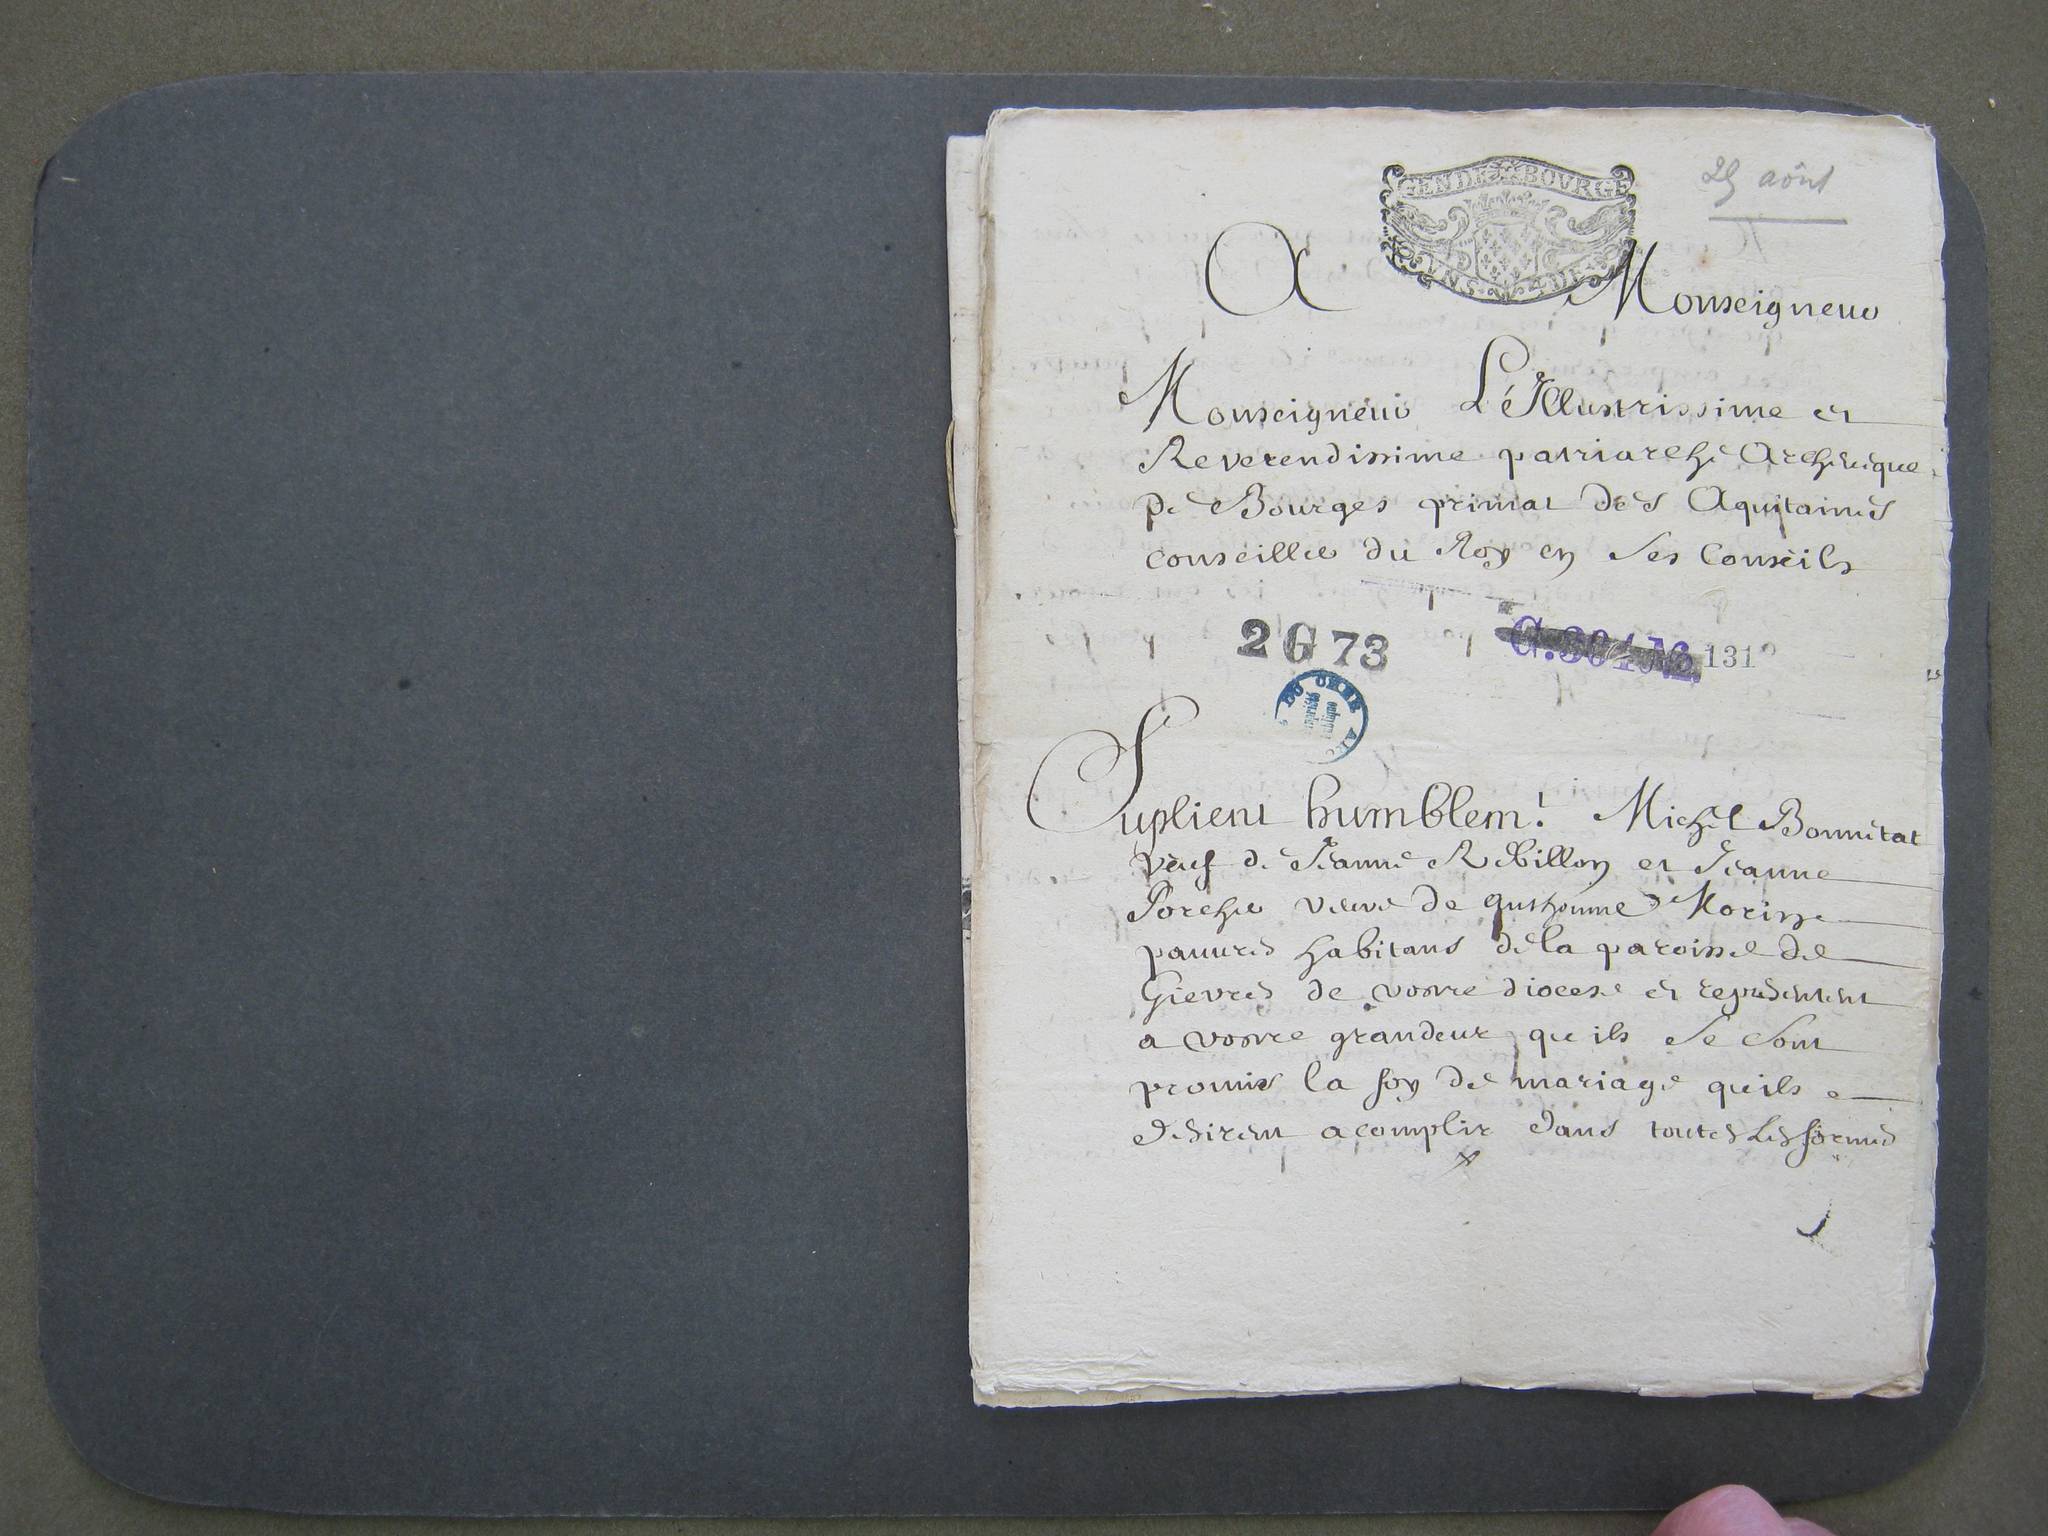 GENDE BOVRGE
25 aôut
A Monseigneur
Monseigneur L'Illustrissime et
Reverendissime patriarche Archeveque
De Bourges primat des Aquitaines
conseiller du Roy en Ses Conseils
2 G 73
G.304 No 131
DU CHER
Suplient humblemt. Michel Bonnitat
veuf de Jeanne Rebillon et Jeanne
Porcher veuve de Morin
pauvres habitans de la paroisse de
Gievres de vostre diocese et representent
a vostre grandeur qu'ils Se Sont
promis la foy de mariage qu'ils
desirent acomplir dans toutes Les formes